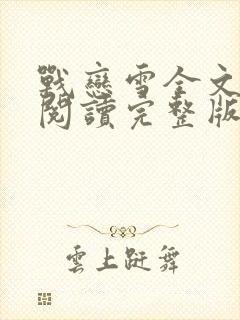 戰戀雪全文
閱讀完整版
雲上跹舞